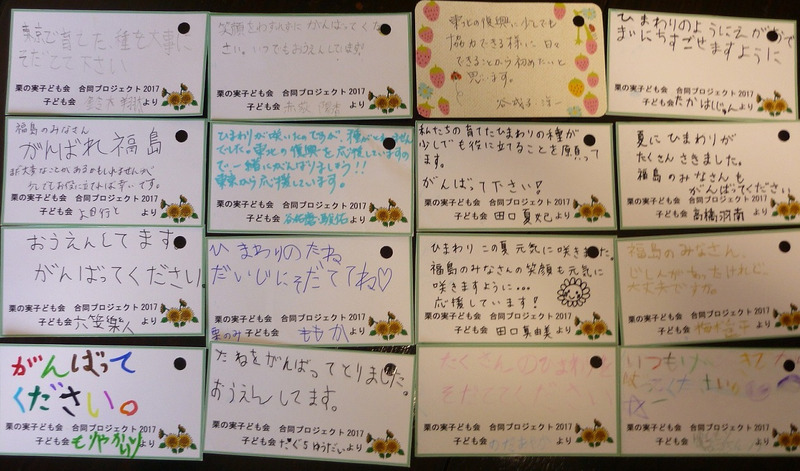 東京で育てた種を大事に
そだてて下さい
栗の実子ども会 合同プロジェクト2017
子ども会 より
笑顔をわすれずにがんばってくだ
さい。いつでもおうえんしています!
栗の実子ども会 合同プロジェクト2017
子ども会 より
東北の復興に少しでも
協力できる様に、日々
できることから初めたいと
思います。
ひまわりのようにえがおで
まいにちすごせますように
栗の実子ども会 合同プロジェクト2017
子ども会 より
福島のみなさん
がんばれ福島
まだ大変なことがあるかもしれませんが、
少しでもお役に立てれば幸いです。
栗の実子ども会 合同プロジェクト2017
子ども会 より
ひまわりが咲いたのですが、種がとれません
でした。東北の復興を応援していますの
で一緒にがんばりましょう!!
東京から応援しています。
栗の実子ども会 合同プロジェクト2017
子ども会 より
私たちの育てたひまわりの種が
少しでも役に立てることを願って
ます。
がんばって下さい!
栗の実子ども会 合同プロジェクト2017
子ども会 田口夏妃より
夏にひまわりが
たくさんさきました。
福島のみなさんも
がんばってください
栗の実子ども会 合同プロジェクト2017
子ども会 高橋羽南 より
おうえんしてます
がんばってください。
栗の実子ども会 合同プロジェクト2017
子ども会 より
ひまわりのたね
だいじにそだててね♡
栗の実子ども会 合同プロジェクト2017
栗のみ 子ども会 ももか より
ひまわり この夏 元気に咲きました。
福島のみなさんの笑顔も元気に
咲きますように…
応援しています!
栗の実子ども会 合同プロジェクト2017
子ども会 田口真由美 より
福島のみなさん、
じしんがあったけれど、
大丈夫ですか。
栗の実子ども会 合同プロジェクト2017
子ども会 より
がんばって
ください。
栗の実子ども会 合同プロジェクト2017
子ども会 より
たねをがんばってとりました。
おうえんしてます。
栗の実子ども会 合同プロジェクト2017
子ども会 たぐちゆうだい より
たくさんのひまわりを
そだててください
栗の実子ども会 合同プロジェクト2017
子ども会 より
栗の実子ども会 合同プロジェクト2017
子ども会 より